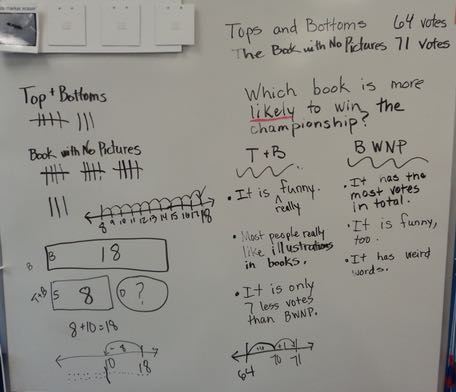 Tops and Bottoms 64 votes
The Book with No Pictures 71 votes
Top + Bottoms
Book with No Pictures
8 9 10 11 12 13 14 15 16 17 18
B 18
B
T+B
S 8
D ?
8+10=18
- 8
10 18
Which book is more
likely to win the
championship?
T + B
• It is funny.
really
• Most people really
like illustrations
in books.
• It is only
7 less votes
than BWNP.
64 70 71
BWNP
• It has the
most votes
in total.
• It is funny,
too.
• It has weird
words.